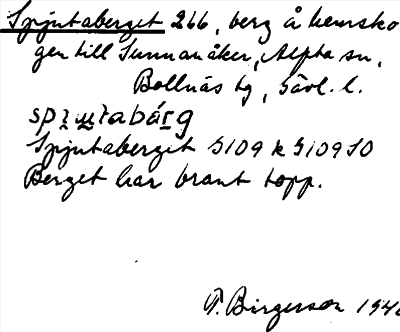 Spjutaberget 266, berg å hemsko
gen till Sunnanåker, Alfta sn,
Bollnäs tg, Gävl. l.
Spjutaberget G109 k G109 SO
Berget har brant topp.
F. Birgerson 194